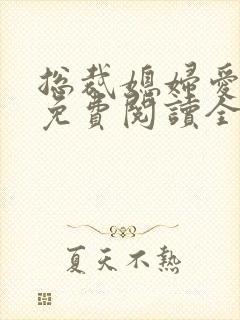 总裁媳婦愛
免費閱讀全
夏天不熱